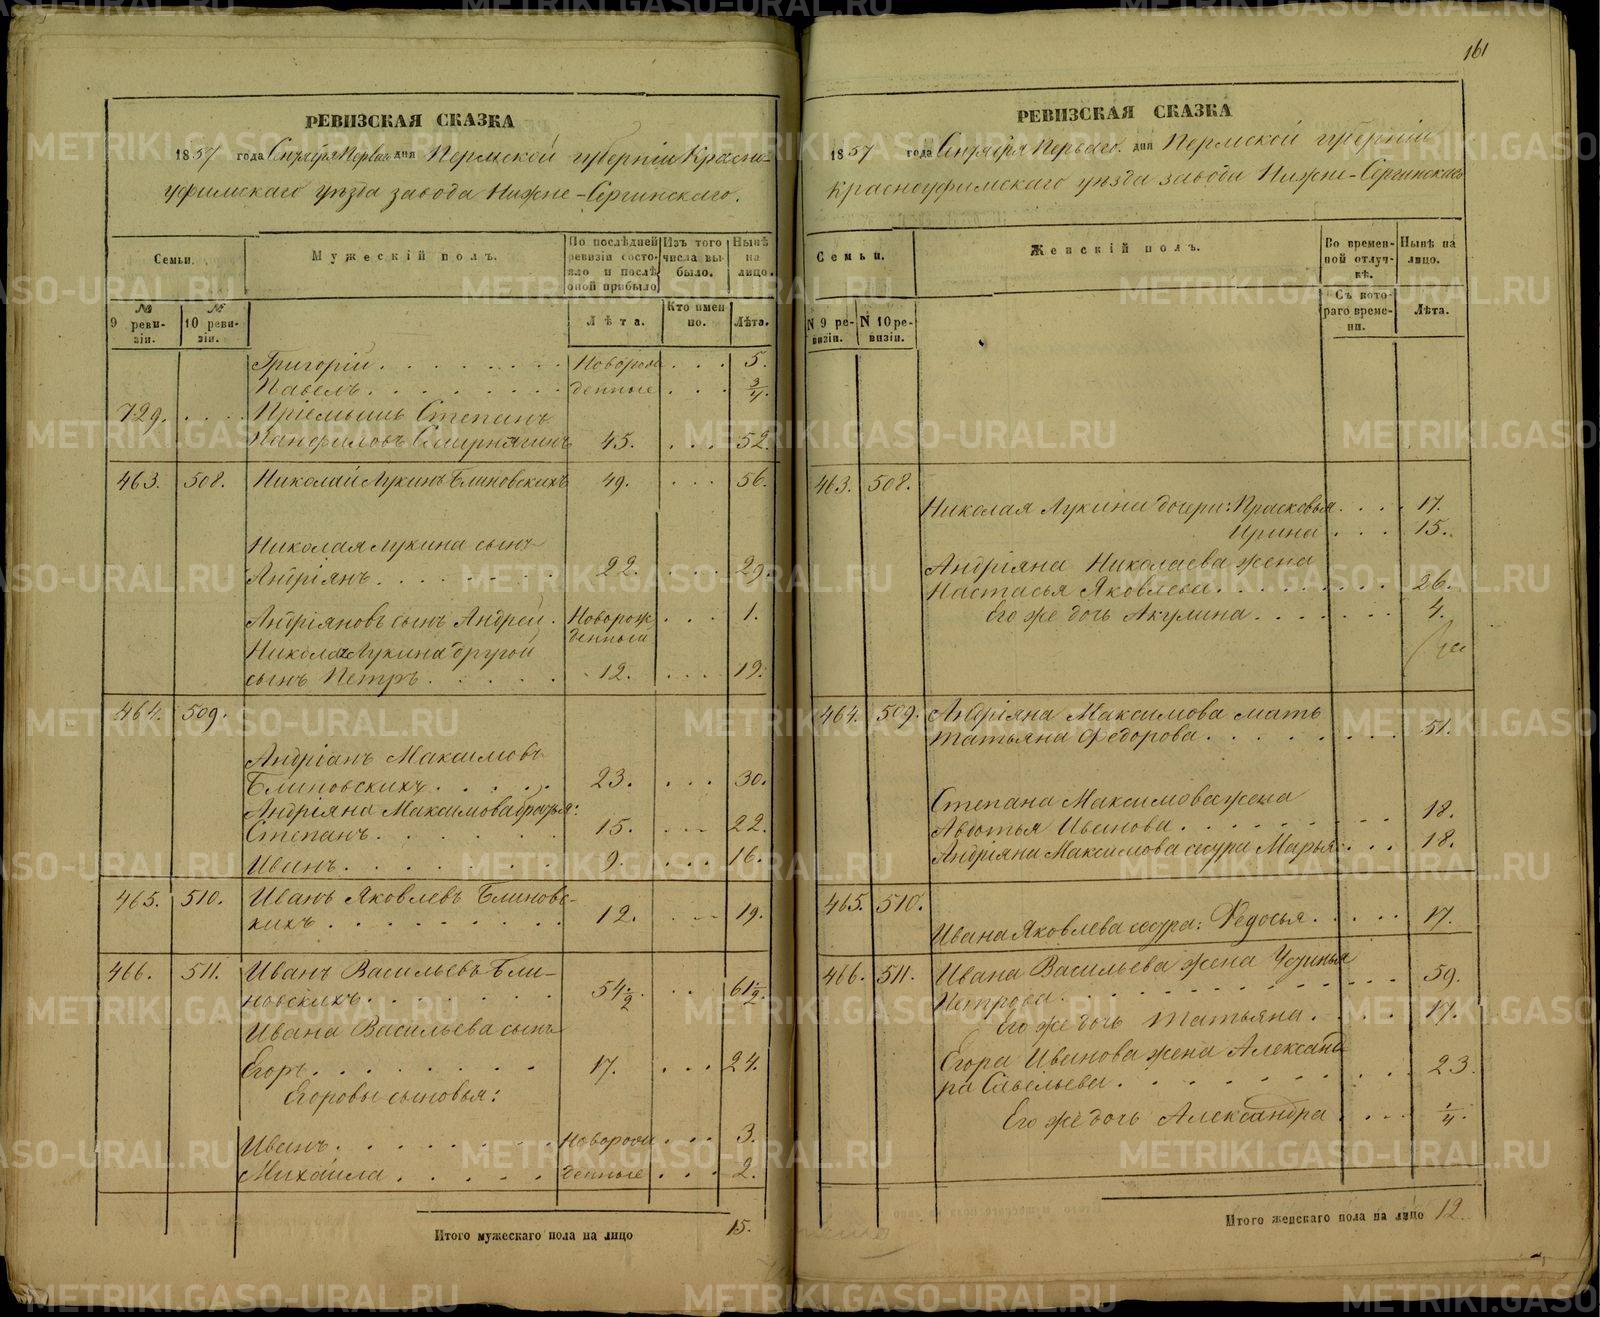 161
РЕВИЗСКАЯ СКАЗКА
1857 года Сентября Перваго дня Пермской губерніи Красно-
уфимскаго уѣзда завода Нижне-Сергинскаго.
Семьи.
Мужескій полъ.
По послѣдней ревизіи состояло и послѣ оной прибыло
Изъ того числа выбыло.
Нынѣ на лицо.
№ 9 ревизіи.
№ 10 ревизіи.
Лѣта.
Кто именно.
Лѣта.
Григорій . . . Новорож- . . . 5.
Павелъ . . . денные . . . 3/4.
729. . . . Пріемышъ Степанъ
Панфиловъ 45. . . . 52.
463. 508. Николай Лукинъ Блиновскихъ 49. . . . 56.
Николая Лукина сынъ
Андріянъ . . . 22. . . . 29.
Андріяновъ сынъ Андрей . Новорож- 1.
денный
Николая Лукина другой
сынъ Петръ . . . 12. . . . 19.
464. 509.
Андріанъ Максимовъ
Блиновскихъ . . . 23. . . . 30.
Андріяна Максимова братья:
Степанъ . . . 15. . . . 22.
Иванъ . . . 9. . . . 16.
465. 510. Иванъ Яковлевъ Блиновс-
кихъ . . . 12. . . . 19.
466. 511. Иванъ Васильевъ Бли-
новскихъ . . . 54 1/2. . . 61 1/2.
Ивана Васильева сынъ
Егоръ . . . 17. . . . 24.
Егоровы сыновья:
Иванъ . . . Новорож- . . . 3.
Михайла . . . денные . . . 2.
Итого мужескаго пола на лицо 15.
РЕВИЗСКАЯ СКАЗКА
1857 года Сентября Перваго дня Пермской губерніи
Красноуфимскаго уѣзда завода Нижне-Сергинскаго
Семьи.
Женскій полъ.
Во временной отлучкѣ.
Нынѣ на лицо.
N 9 ревизіи.
N 10 ревизіи.
Съ котораго времени.
Лѣта.
463. 508.
Николая Лукина дочери: Прасковья . . . 17.
Ирина . . . 15.
Андріяна Николаева жена
Настасья Яковлева . . . 26.
Его же дочь Акулина . . . 4.
464. 509. Андріяна Максимова мать
Татьяна Федорова . . . 51.
Степана Максимова жена
Авдотья Иванова . . . 18.
Андріяна Максимова сестра Марья . . . 18.
465. 510.
Ивана Яковлева сестра: Федосья . . . 17.
466. 511. Ивана Васильева жена Устинья
Петрова . . . 59.
Его же дочь Татьяна . . . 17.
Егора Иванова жена Александ-
ра Савельева . . . 23.
Его же дочь Александра . . . 1/4.
Итого женскаго пола на лицо 12.
METRIKI.GASO-URAL.RU